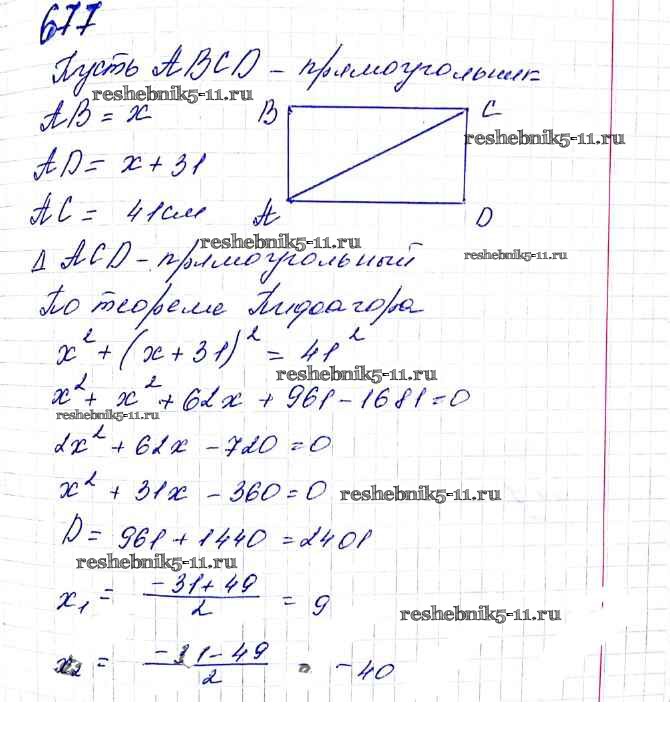 677
Пусть ABCD - прямоугольник
reshebnik5-11.ru
AB = x
B C
reshebnik5-11.ru
AD = x + 31
AC = 41см
A D
reshebnik5-11.ru
Δ ACD - прямоугольный
reshebnik5-11.ru
По теореме Пифагора
x² + (x + 31)² = 41²
reshebnik5-11.ru
x² + x² + 62x + 961 - 1681 = 0
reshebnik5-11.ru
2x² + 62x - 720 = 0
x² + 31x - 360 = 0
reshebnik5-11.ru
D = 961 + 1440 = 2401
reshebnik5-11.ru
x₁ = (-31 + 49)/2 = 9
reshebnik5-11.ru
x₂ = (-31 - 49)/2 = -40